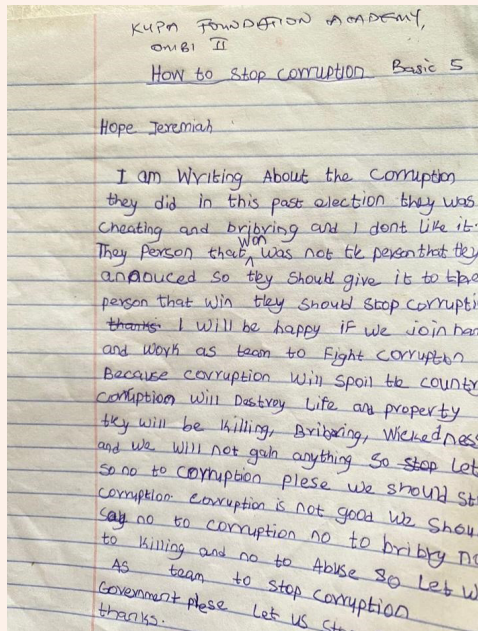 KUPA FOUNDATION ACADEMY,
OMBI II
How to stop corruption Basic 5
Hope Jeremiah
I am Writing About the corruption
they did in this past election they was
cheating and bribring and I dont like it.
They Person that won was not the person that they
annouced so they should give it to the
person that win they should stop corrupti
thanks. I will be happy if we join han
and work as team to Fight corruption
Because corruption will spoil the countr
corruption will Destroy Life and property
they will be killing, Bribering, Wickedness
and we will not gain anything so stop Let
so no to corruption plese we should st
corruption. corruption is not good we shou
say no to corruption no to bribry no
to killing and no to Abuse so Let w
As team to stop corruption
Government plese Let us sto
thanks.